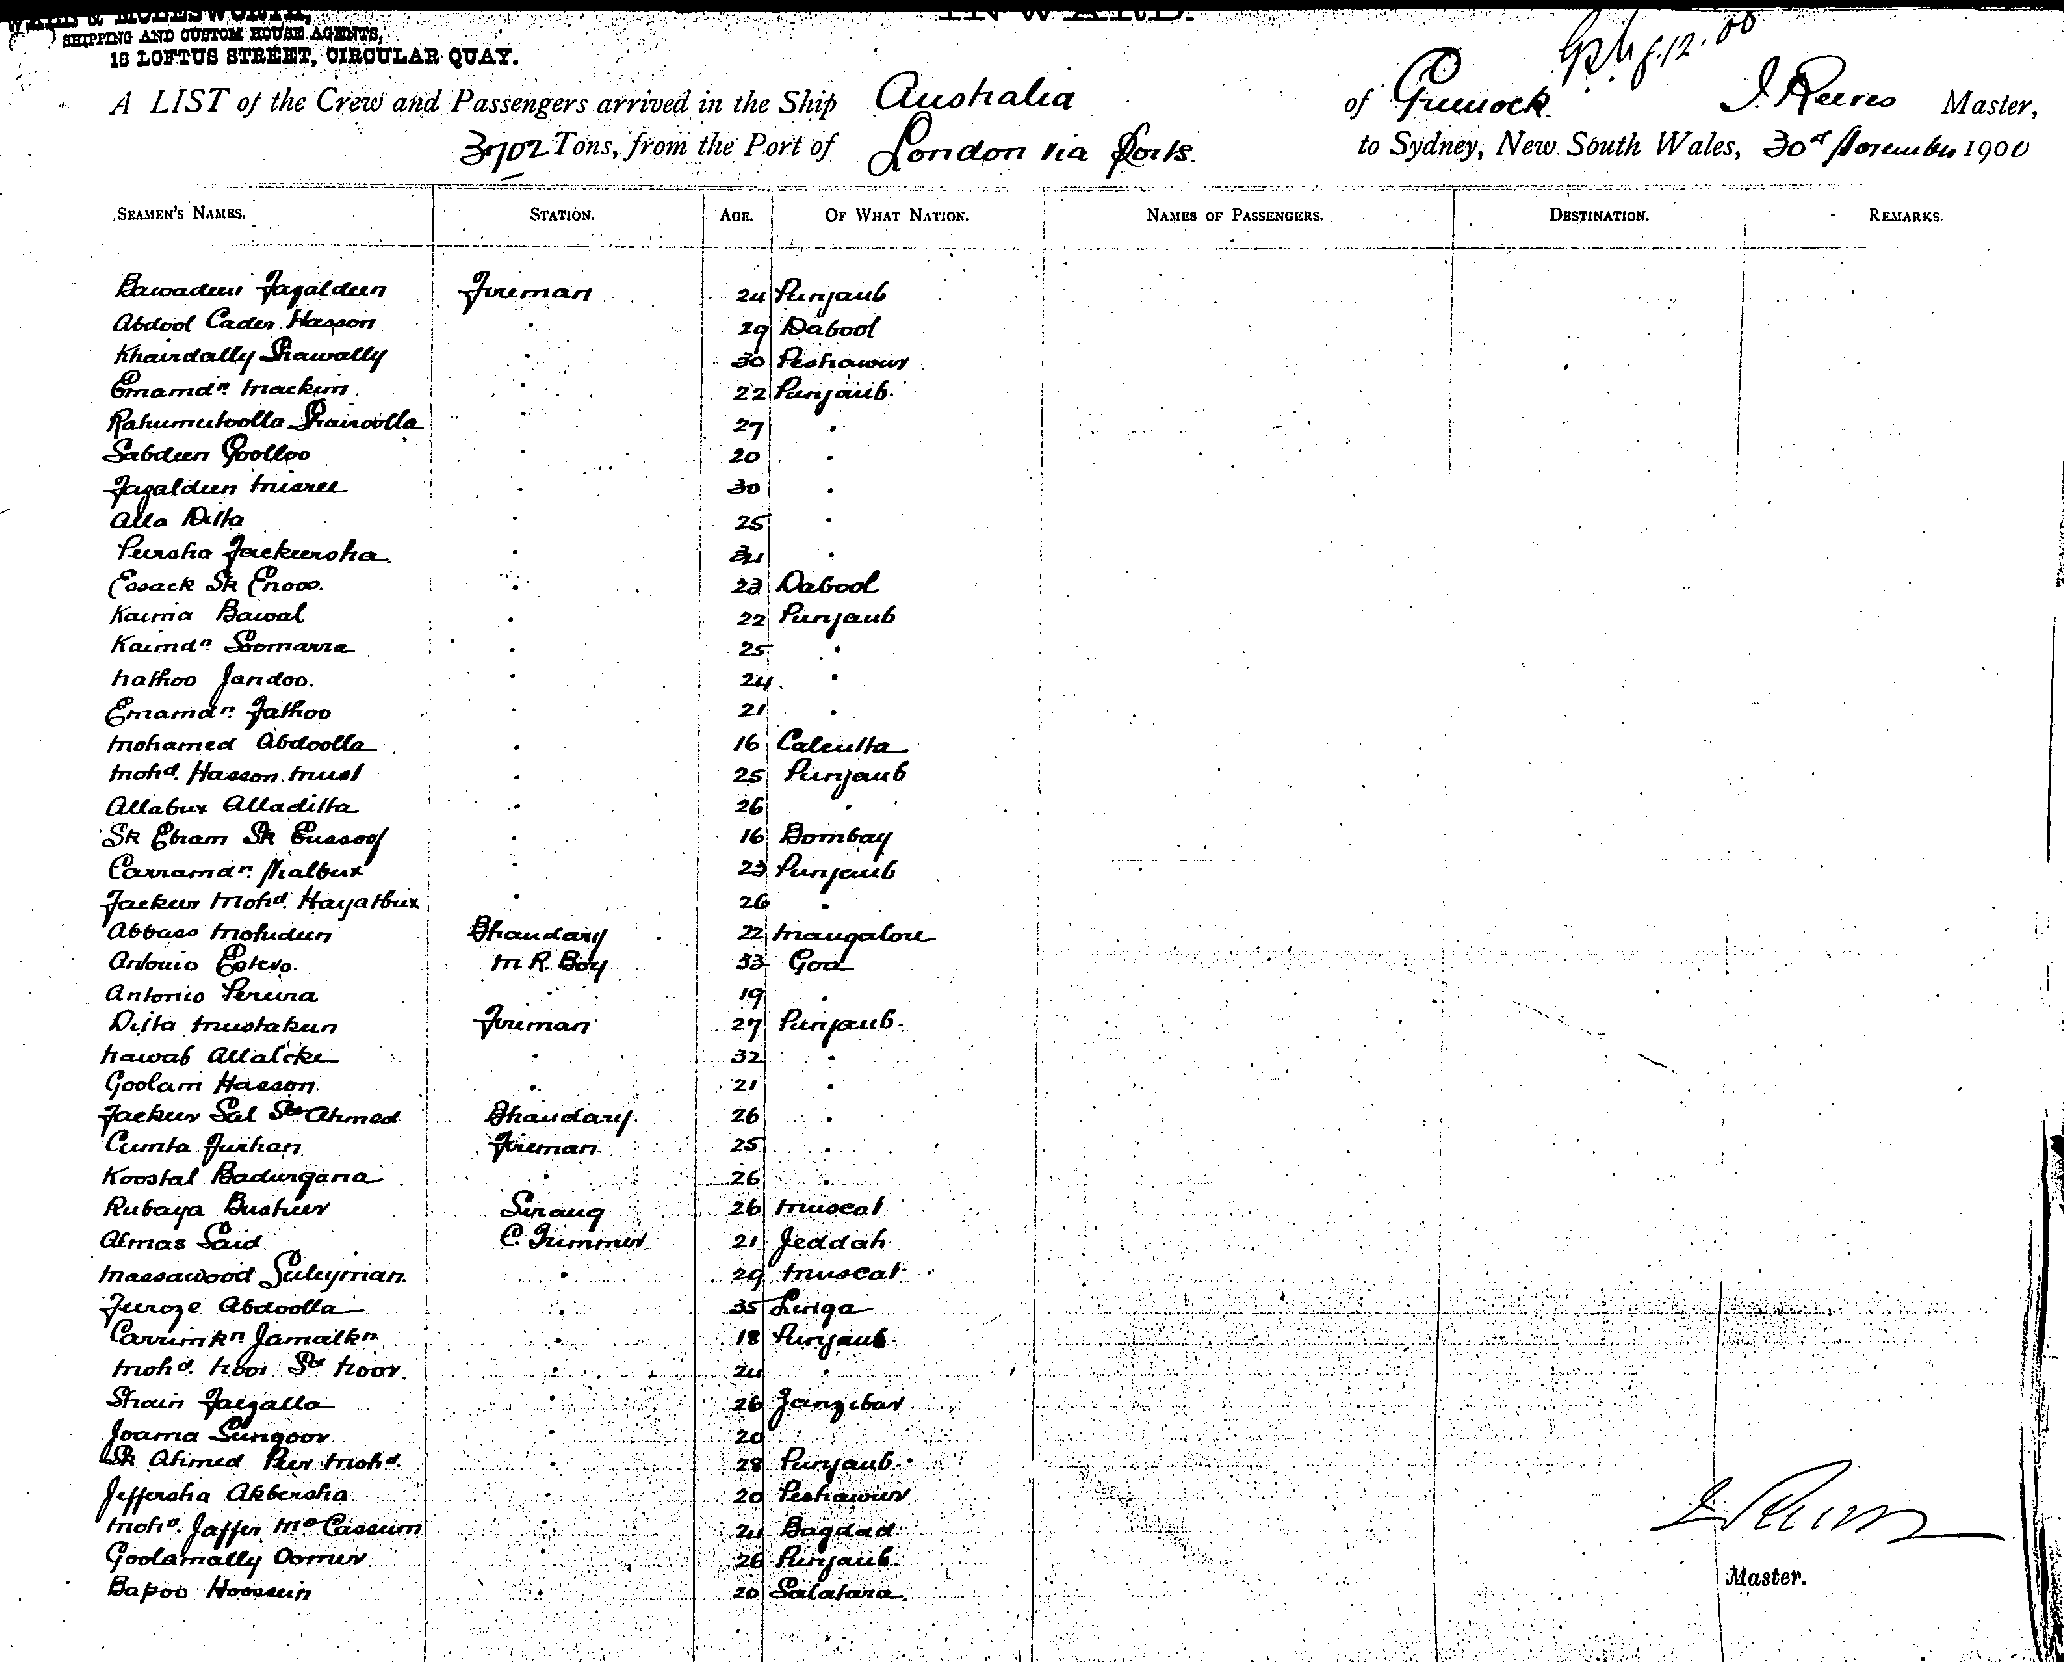 INWARD.
SHIPPING AND CUSTOM HOUSE AGENTS,
18 LOFTUS STREET, CIRCULAR QUAY.
A LIST of the Crew and Passengers arrived in the Ship Australia of Greenock J. Reeves Master,
3702 Tons, from the Port of London via Ports. to Sydney, New South Wales, 30th November 1900
SEAMEN'S NAMES. STATION. AGE. OF WHAT NATION. NAMES OF PASSENGERS. DESTINATION. REMARKS.
Bawadeen Fazaldeen Fireman 24 Punjaub
Abdool Cader Hasson " 29 Dabool
Khairdally Shawally " 30 Peshawur
Emamdn Mackim " 22 Punjaub
Rahumutoolla Shairoolla " 27 "
Sabdeen Goolloo " 20 "
Fazaldeen Misree " 30 "
Alla Ditta " 25 "
Peersha Fackeersha " 34 "
Essack Sk Enoos " 23 Dabool
Kaima Bawal " 22 Punjaub
Kaimdn Soomarra " 25 "
Nathoo Jandoo. " 24 "
Emamdn Fathoo " 21 "
Mohamed Abdoolla " 16 Calcutta
Mohd. Hasson Must " 25 Punjaub
Allabux Alladitta " 26 "
Sk Ebram Sk Eussoof " 16 Bombay
Carramdn Nialbux " 23 Punjaub
Fackeer Mohd. Hayatbux " 26 "
Abbass Mohideen Bhandary 22 Mangalore
Antonio Estevo. M. R. Boy 33 Goa
Antonio Pereira " 19 "
Ditta Mustakeen Fireman 27 Punjaub.
Nawab Allaloke " 32 "
Goolam Hasson " 21 "
Fackeer Sal Sd Ahmed Bhandary 26 "
Cumta Furhan Fireman 25 "
Koostal Badurgana " 26 "
Rubaya Busheer Serang 26 Muscat
Almas Said C. Trimmer 21 Jeddah
Massawood Suleyman " 29 Muscat
Feroze Abdoolla " 35 Linga
Carrimkn Jamalkn " 18 Punjaub
Mohd. Noor Sd Noor. " 24 "
Shain Faezalla " 26 Zanzibar
Joama Sungoor " 20
Sk Ahmed Peer Mohd. " 28 Punjaub
Jeffersha Akbersha " 20 Peshawur
Mohd. Jaffer Md Cassum " 24 Bagdad
Goolamally Oomer " 26 Punjaub
Bapoo Hoossein " 20 Salatara
J Reeves
Master.